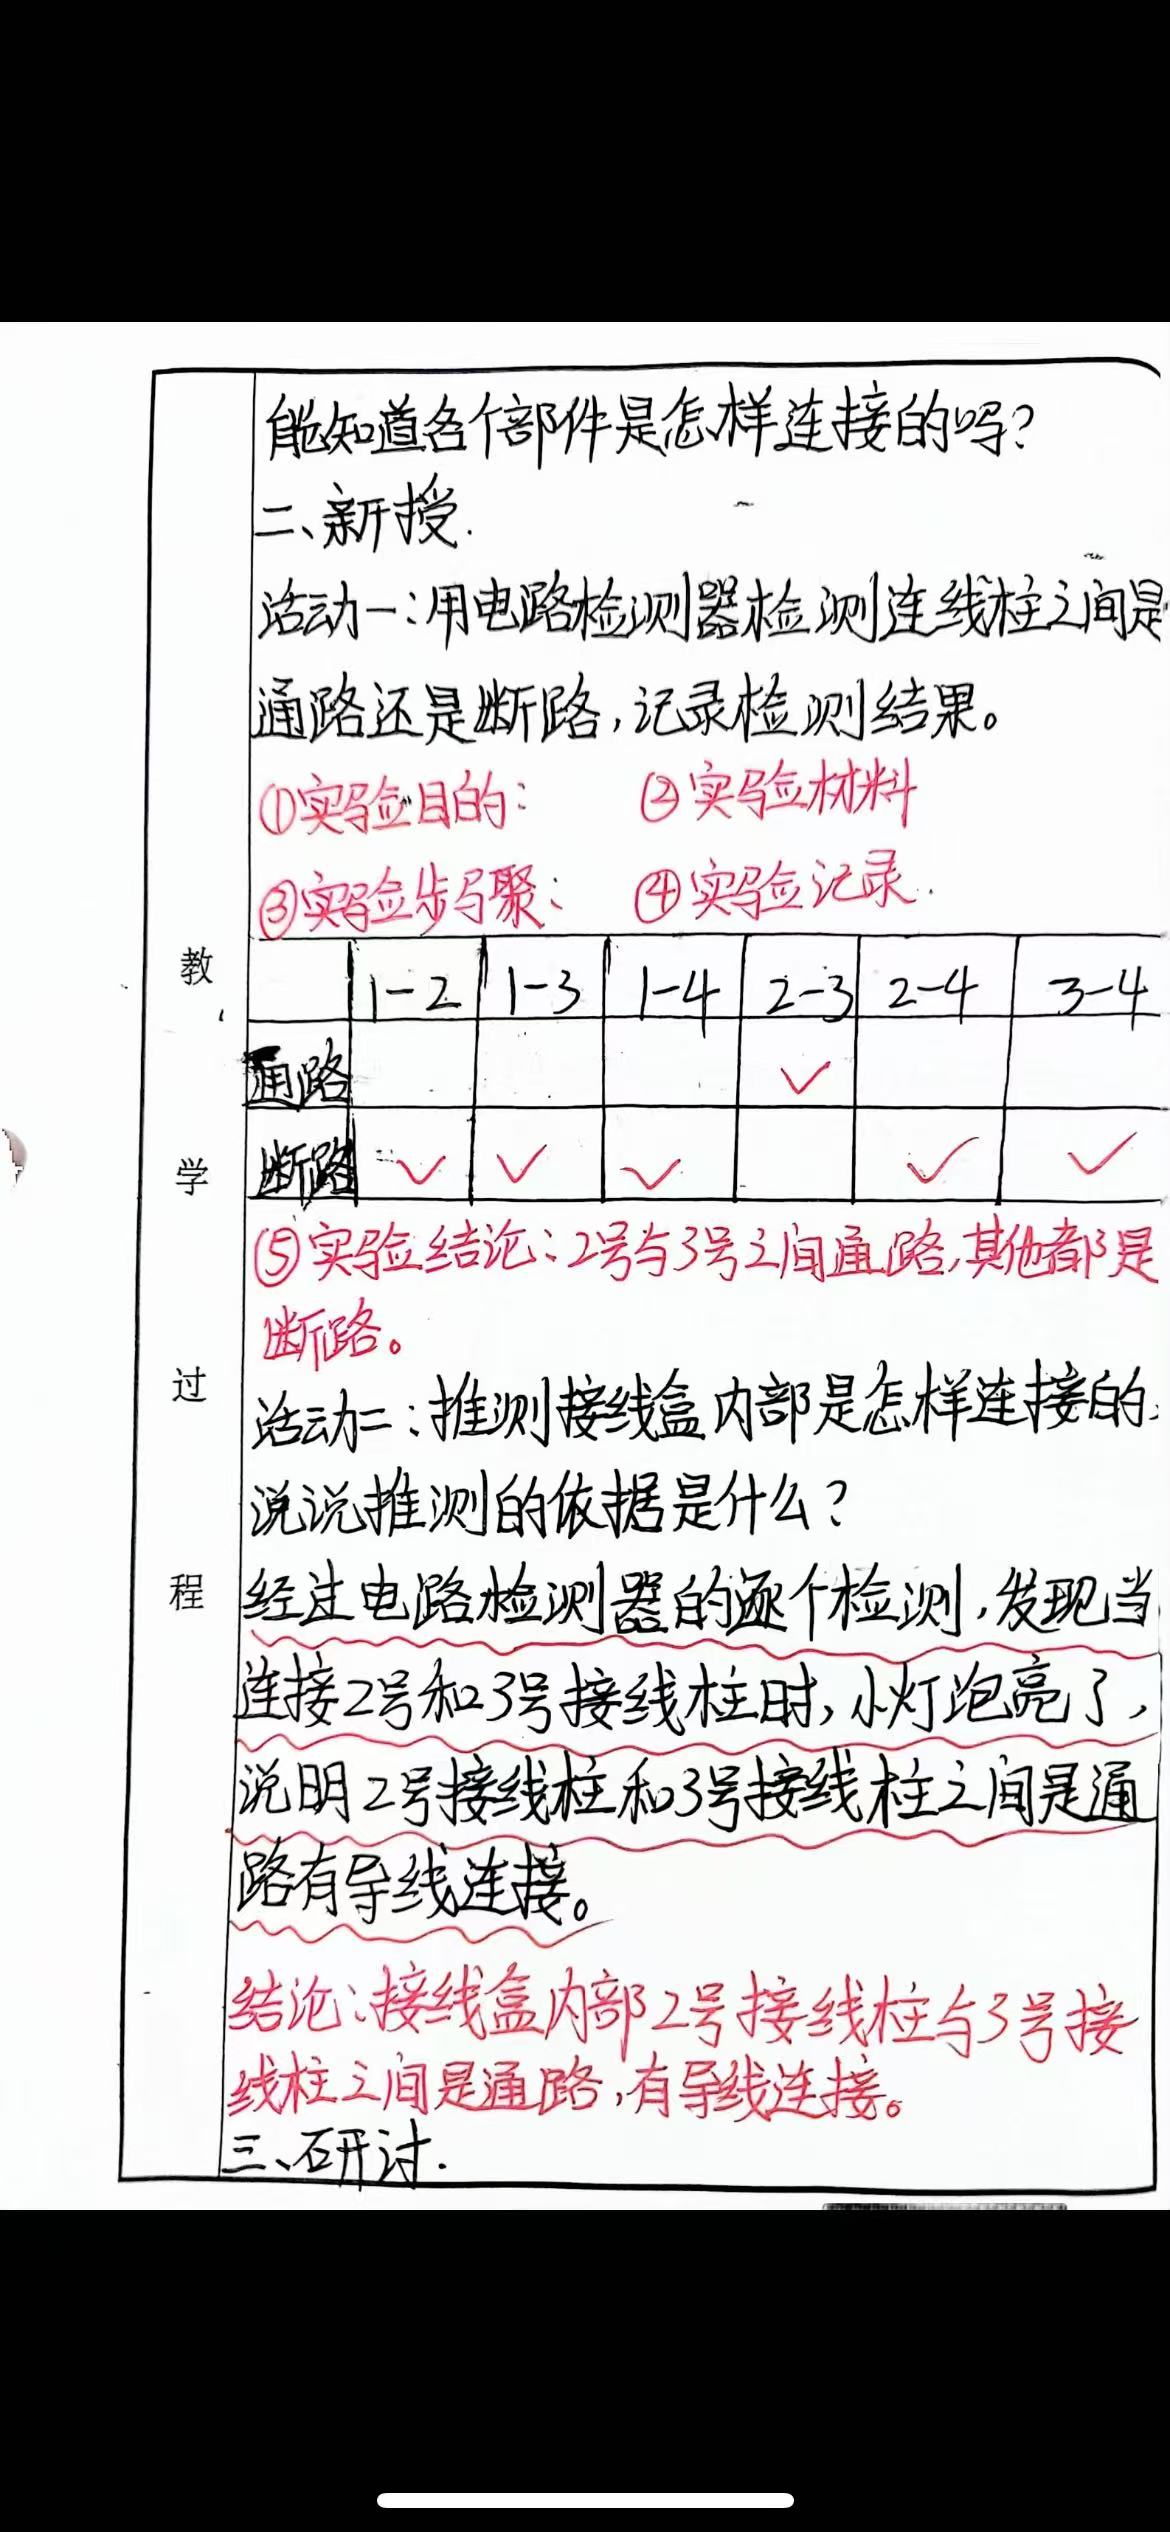 能知道各个部件是怎样连接的吗?
二、新授.
活动一:用电路检测器检测连线柱之间是
通路还是断路,记录检测结果。
①实验目的: ②实验材料
③实验步骤: ④实验记录.
1-2 1-3 1-4 2-3 2-4 3-4
通路 ✓
断路 ✓ ✓ ✓ ✓ ✓
⑤实验结论:2号与3号之间通路,其他都是
断路。
活动二:推测接线盒内部是怎样连接的,
说说推测的依据是什么?
经过电路检测器的逐个检测,发现当
连接2号和3号接线柱时,小灯泡亮了,
说明2号接线柱和3号接线柱之间是通
路有导线连接。
结论:接线盒内部2号接线柱与3号接
线柱之间是通路,有导线连接。
三、研讨.
教
学
过
程